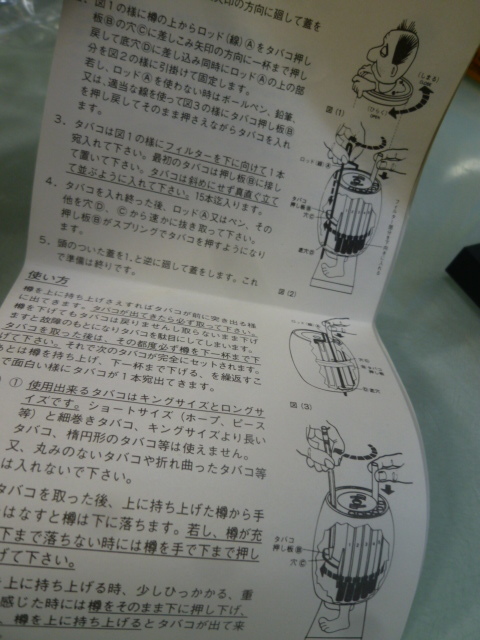 矢印の方向に廻して蓋を
図1の様に樽の上からロッド(線)Ⓐをタバコ押し
板Ⓑの穴Ⓒに差しこみ矢印の方向に一杯まで押し
戻して底穴Ⓓに差し込み同時にロッドⒶの上の部
分を図2の様に引掛けて固定します。
若し、ロッドⒶを使わない時はボールペン、鉛筆、
又は、適当な線を使って図3の様にタバコ押し板Ⓑ
を押し戻してそのまま押さえながらタバコを入れ
ます。
3. タバコは図1の様にフィルターを下に向けて1本
宛入れて下さい。最初のタバコは押し板Ⓑに接し
て置いて下さい。タバコは斜めにせず真直ぐ立て
て並ぶように入れて下さい。15本迄入ります。
4. タバコを入れ終った後、ロッドⒶ又はペン、その
他を穴Ⓓ、Ⓒから速かに抜き取って下さい。
押し板Ⓑがスプリングでタバコを押すようになり
ます。
5. 頭のついた蓋を1.と逆に廻して蓋をします。これ
で準備は終りです。
使い方
樽を上に持ち上げさえすればタバコが前に突き出る様
に出てきます。タバコが出てきたら必ず取って下さい。
樽を下げてもタバコは戻りませんし取らないまま下げ
ますと故障のもとになりタバコを駄目にしてしまいます。
タバコを取った後は、その都度必ず樽を下一杯まで下
げて下さい。それで次のタバコが完全にセットされます。
あとは樽を持ち上げ、下一杯まで下げる、を繰返すこ
で面白い様にタバコが1本宛出てきます。
① 使用出来るタバコはキングサイズとロングサ
イズです。ショートサイズ(ホープ、ピース
等)と細巻きタバコ、キングサイズより長い
タバコ、楕円形のタバコ等は使えません。
又、丸みのないタバコや折れ曲ったタバコ等
は入れないで下さい。
タバコを取った後、上に持ち上げた樽から手
はなすと樽は下に落ちます。若し、樽が充
下まで落ちない時には樽を手で下まで押し
げて下さい。
上に持ち上げる時、少しひっかかる、重
感じた時には樽をそのまま下に押し下げ、
、樽を上に持ち上げるとタバコが出て来
(しまる)
(ひらく)
図(1)
ロッド(線)Ⓐ
タバコ
押し板Ⓑ
穴Ⓒ
底穴Ⓓ
図(2)
図(3)
タバコ
押し板Ⓑ
穴Ⓒ